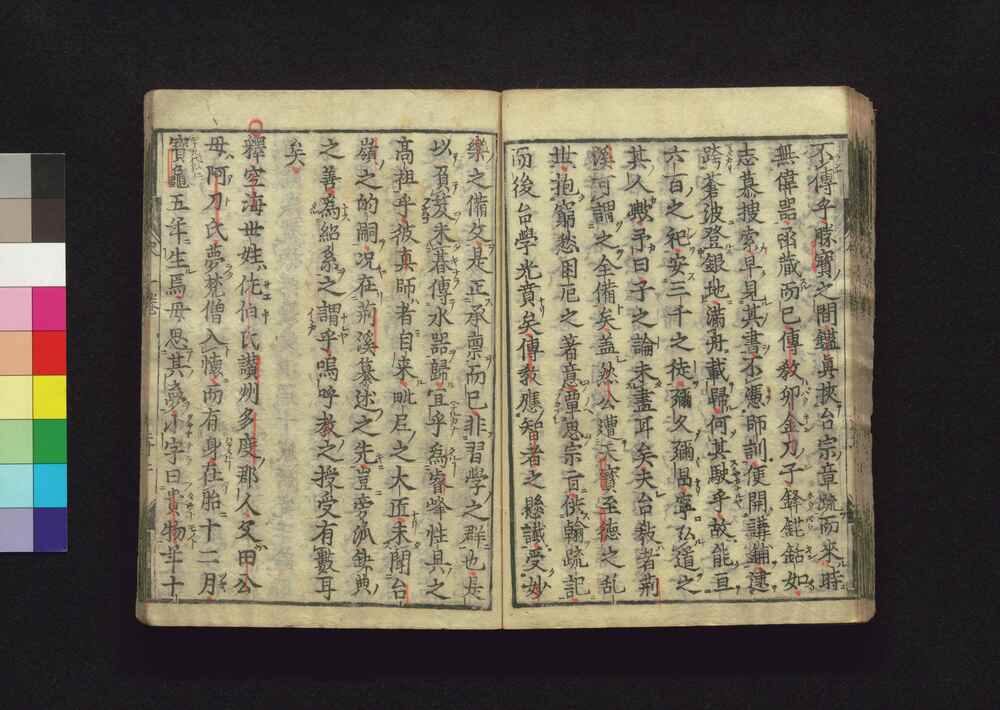 不傳乎勝寶之間鑑眞挾台宗章疏而來時
無偉器函藏而已傳教卯金刀子鋒銛如
志慕搜索早見其書不憑師訓便開講鋪遂
跨蒼波登銀地滿舟載歸何其駛乎故能亘
六百之祀安三千之徒彌久彌昌寧弘道之
其人歟予曰子之論未盡耳矣夫台教者荊
溪可謂之全備矣蓋然公遭天寶至德之亂
世抱窮愁困厄之著意覃思宗亘俠翰疏記
而後台學光賁矣傳教應智者之懸讖受妙
樂之備文是正承禀而已非習學之群也是
以負笈未暮傳水器歸宜乎為睿峰性具之
高祖乎彼眞師者自来毗尼之大匠未聞台
嶺之的嗣况在荊溪纂述之先豈旁派缺典
之善為紹系之謂乎嗚呼教之授受有數耳
矣
釋空海世姓佐伯氏讃州多度郡人父田公
母阿刀氏夢梵僧入懷而有身在胎十二月
寶龜五年生焉母思其夢小字曰貴物年十